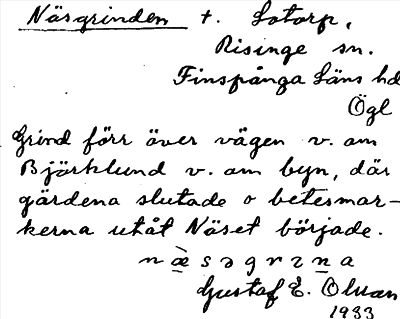 Näsgrinden t. Lotorp,
Risinge sn.
Finspånga Läns hd
Ögl
Grind förr över vägen v. om
Björklund v. om byn, där
gärdena slutade o betesmar-
kerna utåt Näset började.
Gustaf E. Olsson
1933